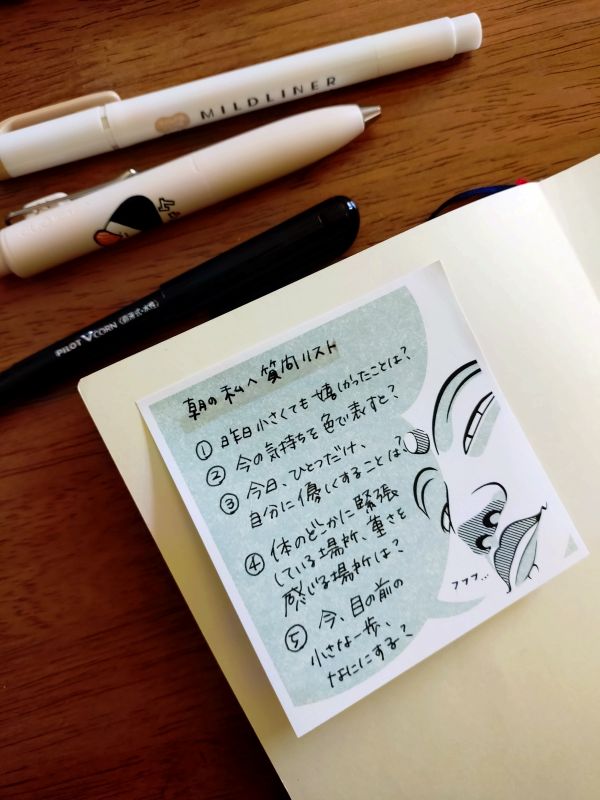 MILDLINER
PILOT VCORN (直液式・水性)
朝の私へ質問リスト
① 昨日小さくても嬉しかったことは?
② 今の気持ちを色で表すと?
③ 今日、ひとつだけ、
自分に優しくすることは?
④ 体のどこかに緊張
している場所、重さを
感じる場所は?
⑤ 今、目の前の
小さな一歩、
なににする?
フフフ…